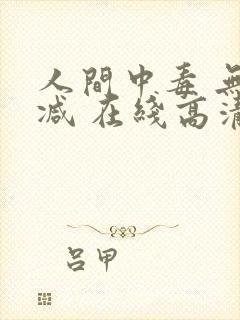 人間中毒 無
減 在綫高清
吕甲